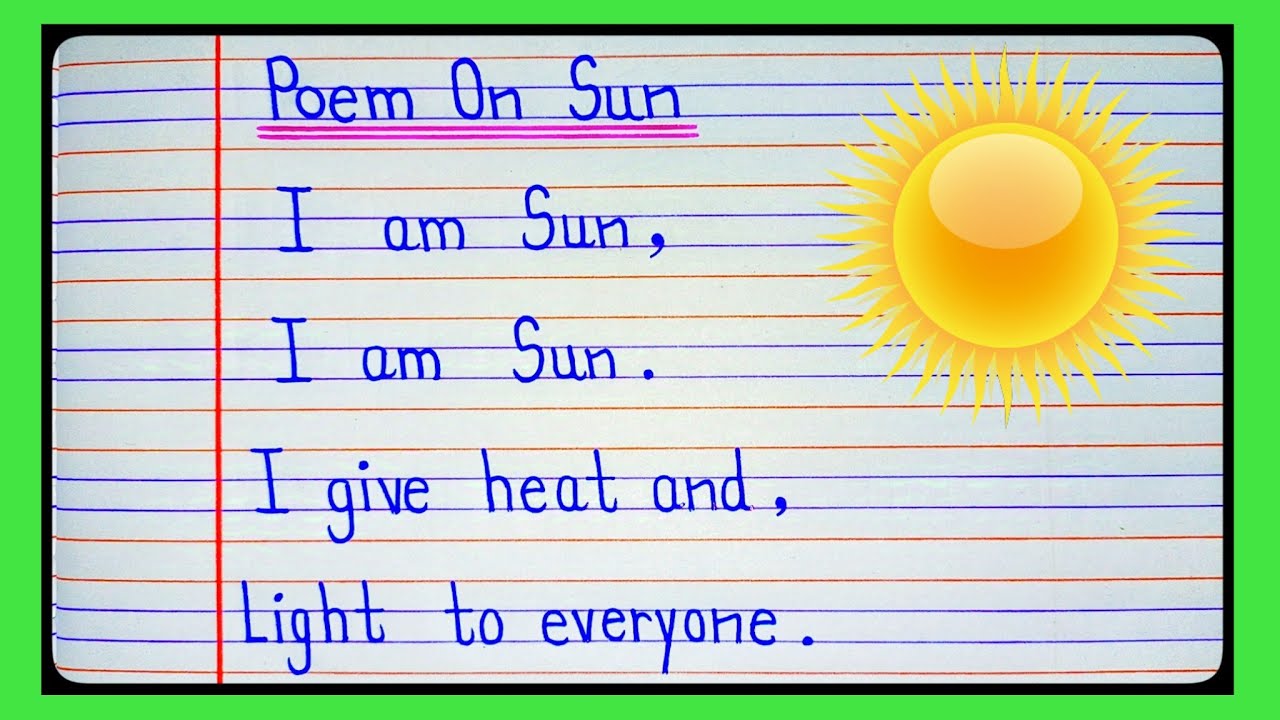 Poem On Sun
I am Sun,
I am Sun.
I give heat and,
Light to everyone.